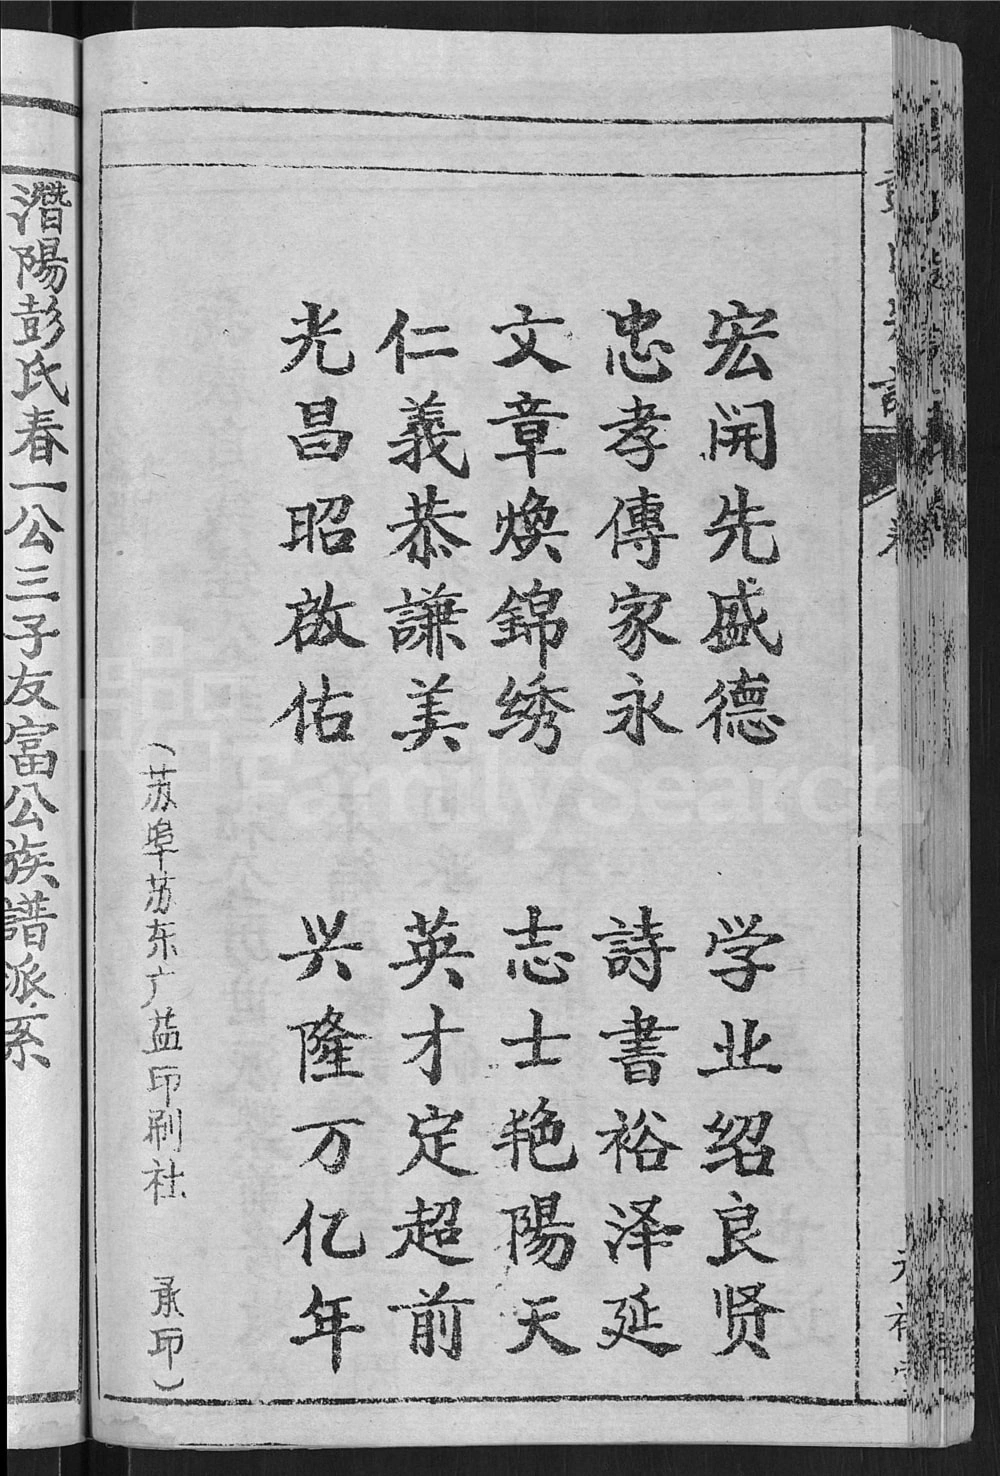 宏開先盛德 学业绍良贤
忠孝傳家永 詩書裕泽延
文章焕錦绣 志士艳陽天
仁義恭謙美 英才定超前
光昌昭啟佑 兴隆万亿年
（苏埠苏东广益印刷社 承印）
潛陽彭氏春一公三子友富公族譜派系
FamilySearch